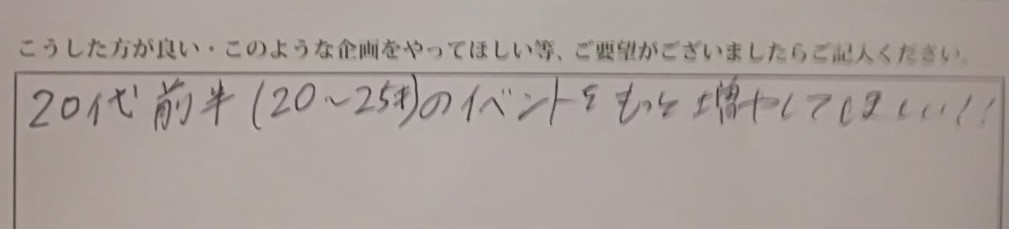 こうした方が良い・このような企画をやってほしい等、ご要望がございましたらご記入ください。
20代前半(20~25才)のイベントをもっと増やしてほしい!!